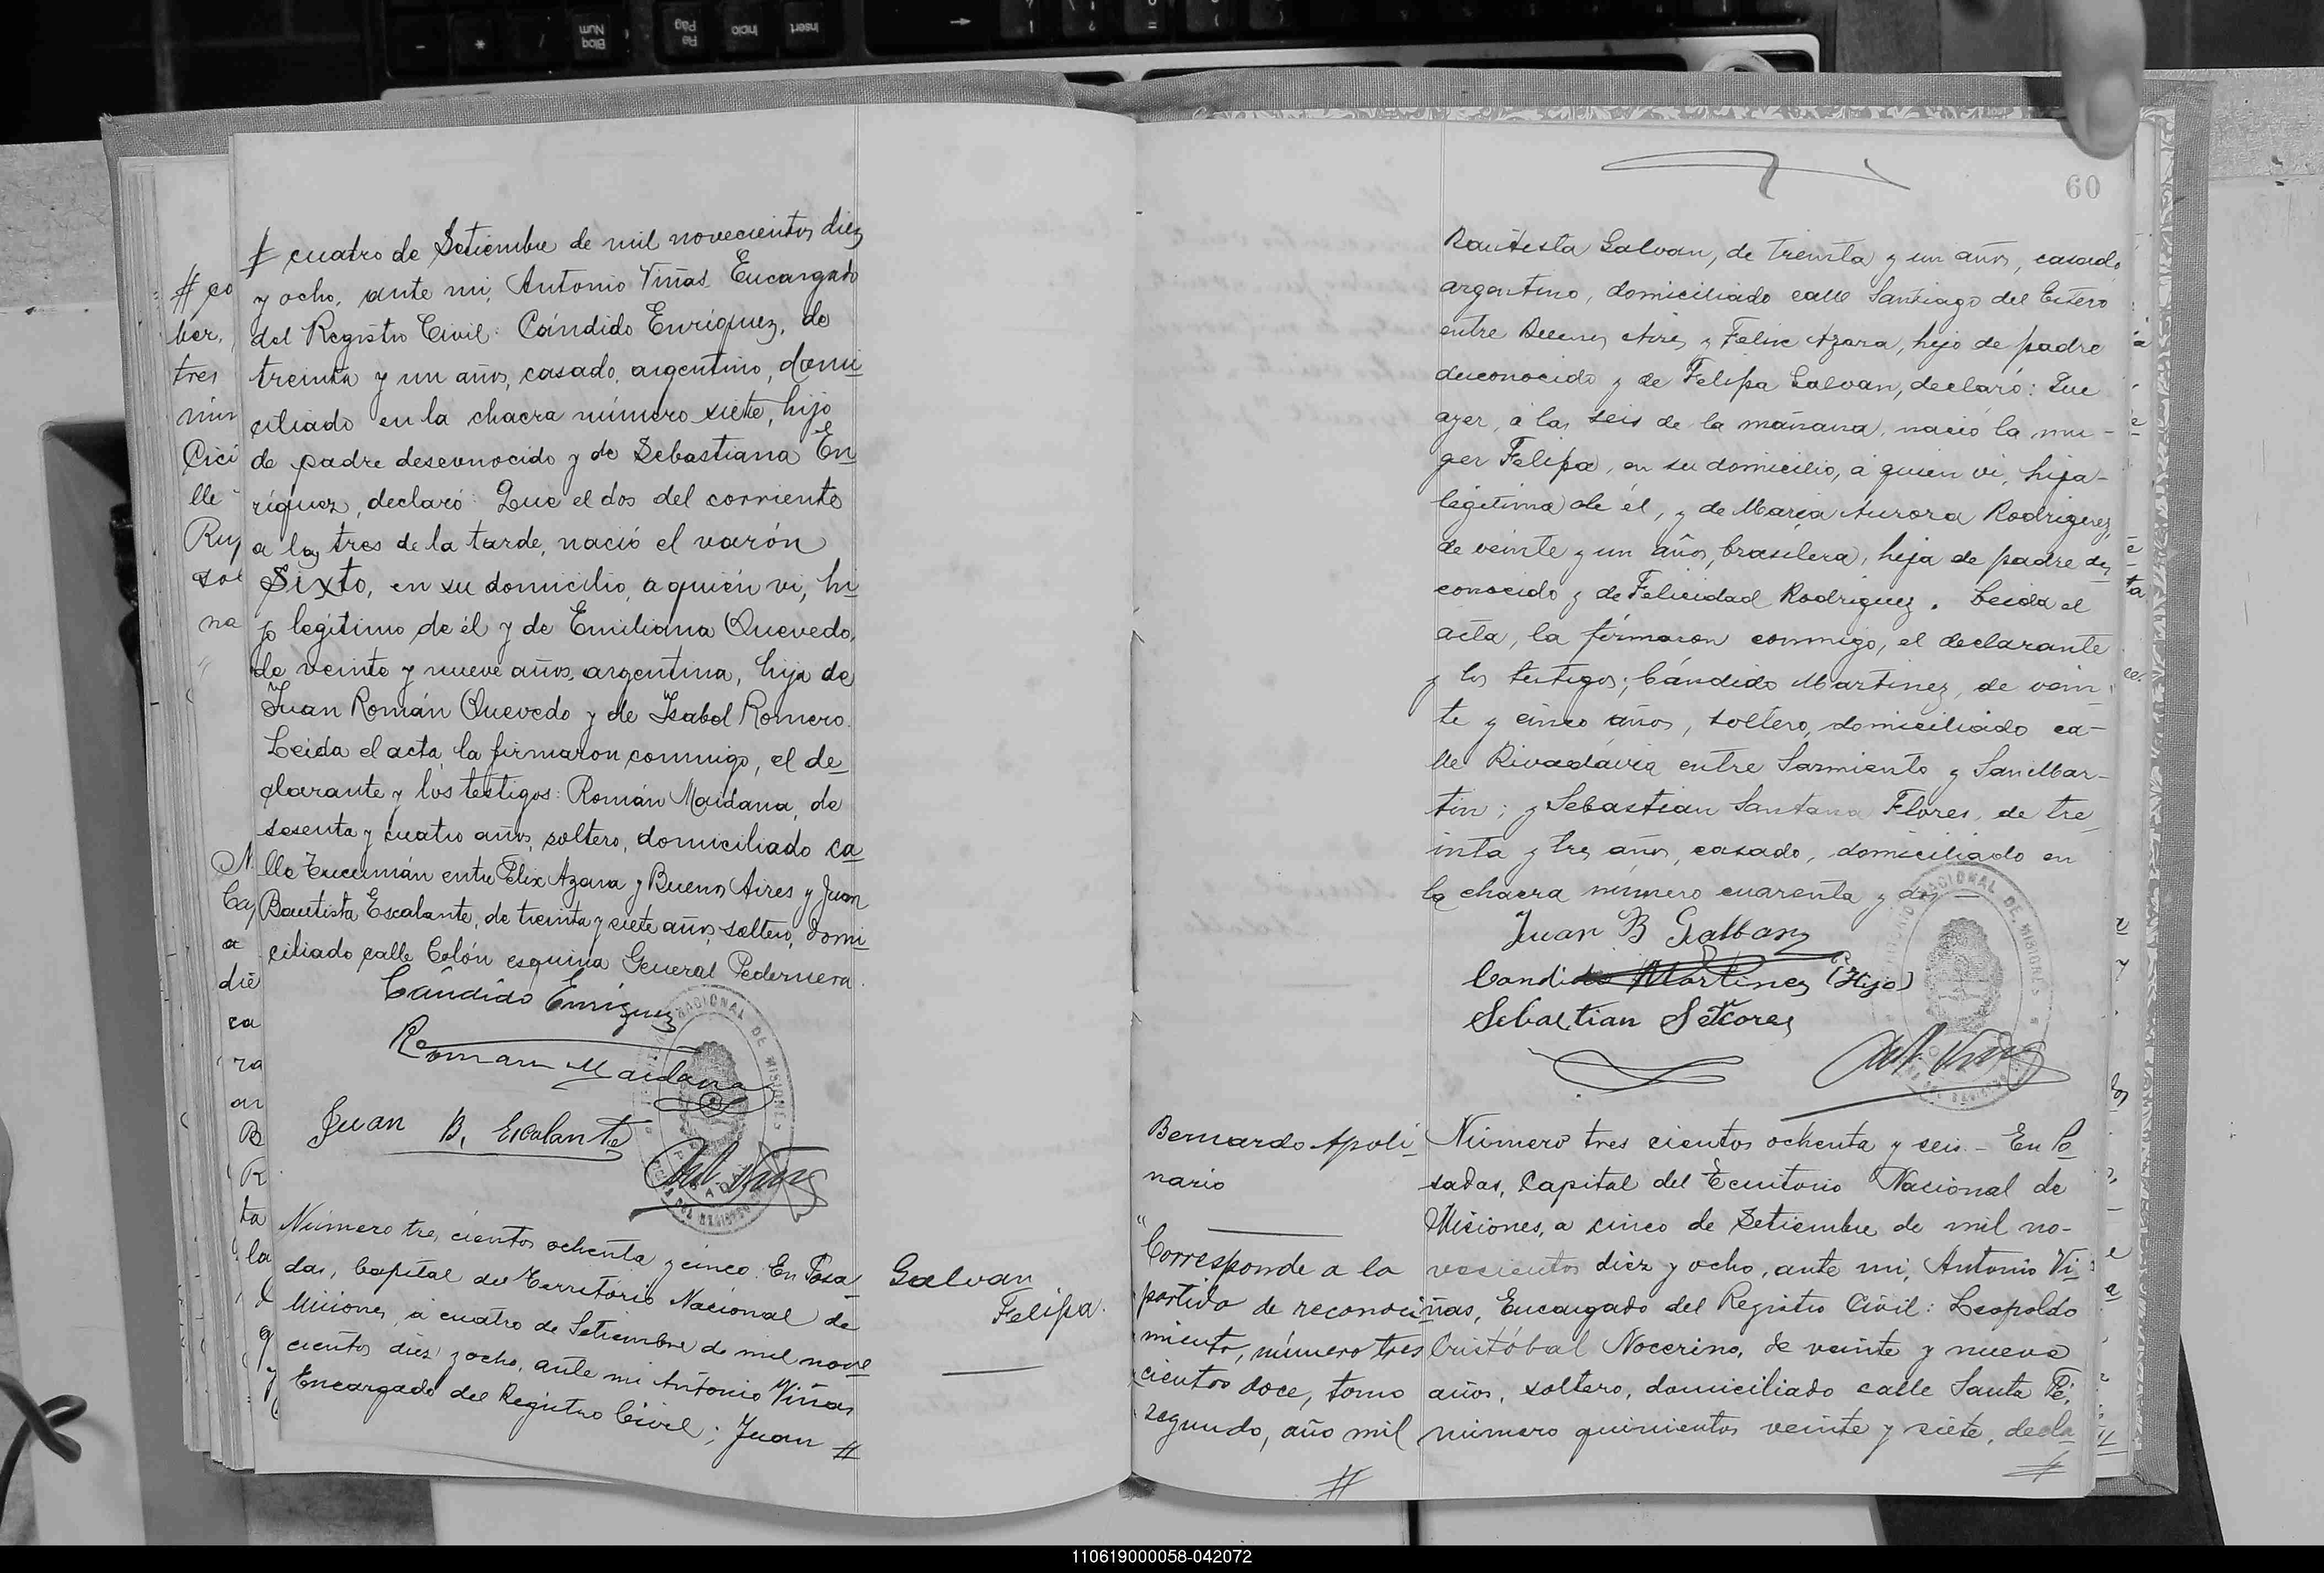 # cuatro de Setiembre de mil novecientos diez
y ocho, ante mi, Antonio Viñas Encargado
del Registro Civil: Cándido Enríquez, de
treinta y un años, casado, argentino, domi
ciliado en la chacra número siete, hijo
de padre desconocido y de Sebastiana En
ríquez, declaró: Que el dos del corriente
a las tres de la tarde, nació el varón
Sixto, en su domicilio, a quién vi, hi
jo legítimo de él y de Emiliana Quevedo,
de veinte y nueve años, argentina, hija de
Juan Román Quevedo y de Isabel Romero.
Leida el acta, la firmaron conmigo, el de
clarante y los testigos: Román Maidana, de
sesenta y cuatro años, soltero, domiciliado ca
lle Tucumán entre Félix Azara y Buenos Aires y Juan
Bautista Escalante, de treinta y siete años, soltero, domi
ciliado calle Colón esquina General Pedernera.
Cándido Enriquez
Roman Maidana
Juan B. Escalante
Ant. Viñas
Número tres cientos ochenta y cinco. En Posa
das, Capital del Territorio Nacional de
Misiones, a cuatro de Setiembre de mil nove
cientos diez y ocho, ante mi Antonio Viñas
Encargado del Registro Civil; Juan #
Galvan
Felipa.
60
Bautista Galvan, de treinta y un años, casado
argentino, domiciliado calle Santiago del Estero
entre Buenos Aires y Felix Azara, hijo de padre
desconocido y de Felipa Galvan, declaró: Que
ayer, a las seis de la mañana, nació la mu-
ger Felipa, en su domicilio, a quien vi, hija-
legítima de él, y de María Aurora Rodriguez,
de veinte y un años, brasilera, hija de padre des
conocido y de Felicidad Rodriguez. Leida el
acta, la firmaron conmigo, el declarante
y los testigos; Cándido Martinez, de vein
te y cinco años, soltero, domiciliado ca-
lle Rivadavia entre Sarmiento y San Mar-
tin; y Sebastian Santana Flores, de tre
inta y tres años, casado, domiciliado en
la chacra número cuarenta y dos —
Juan B Galban
Candido Martinez (Hijo)
Sebastian
Ant. Viñas
Bernardo Apoli
nario
"Corresponde a la
partida de reconoci
miento, número tres
cientos doce, tomo
segundo, año mil
#
Número tres cientos ochenta y seis. - En Po
sadas, Capital del Territorio Nacional de
Misiones, a cinco de Setiembre de mil no-
vecientos diez y ocho, ante mi, Antonio Vi
ñas, Encargado del Registro Civil: Leopoldo
Cristóbal Nocerino, de veinte y nueve
años, soltero, domiciliado calle Santa Fé,
número quinientos veinte y siete, decla
#
110619000058-042072